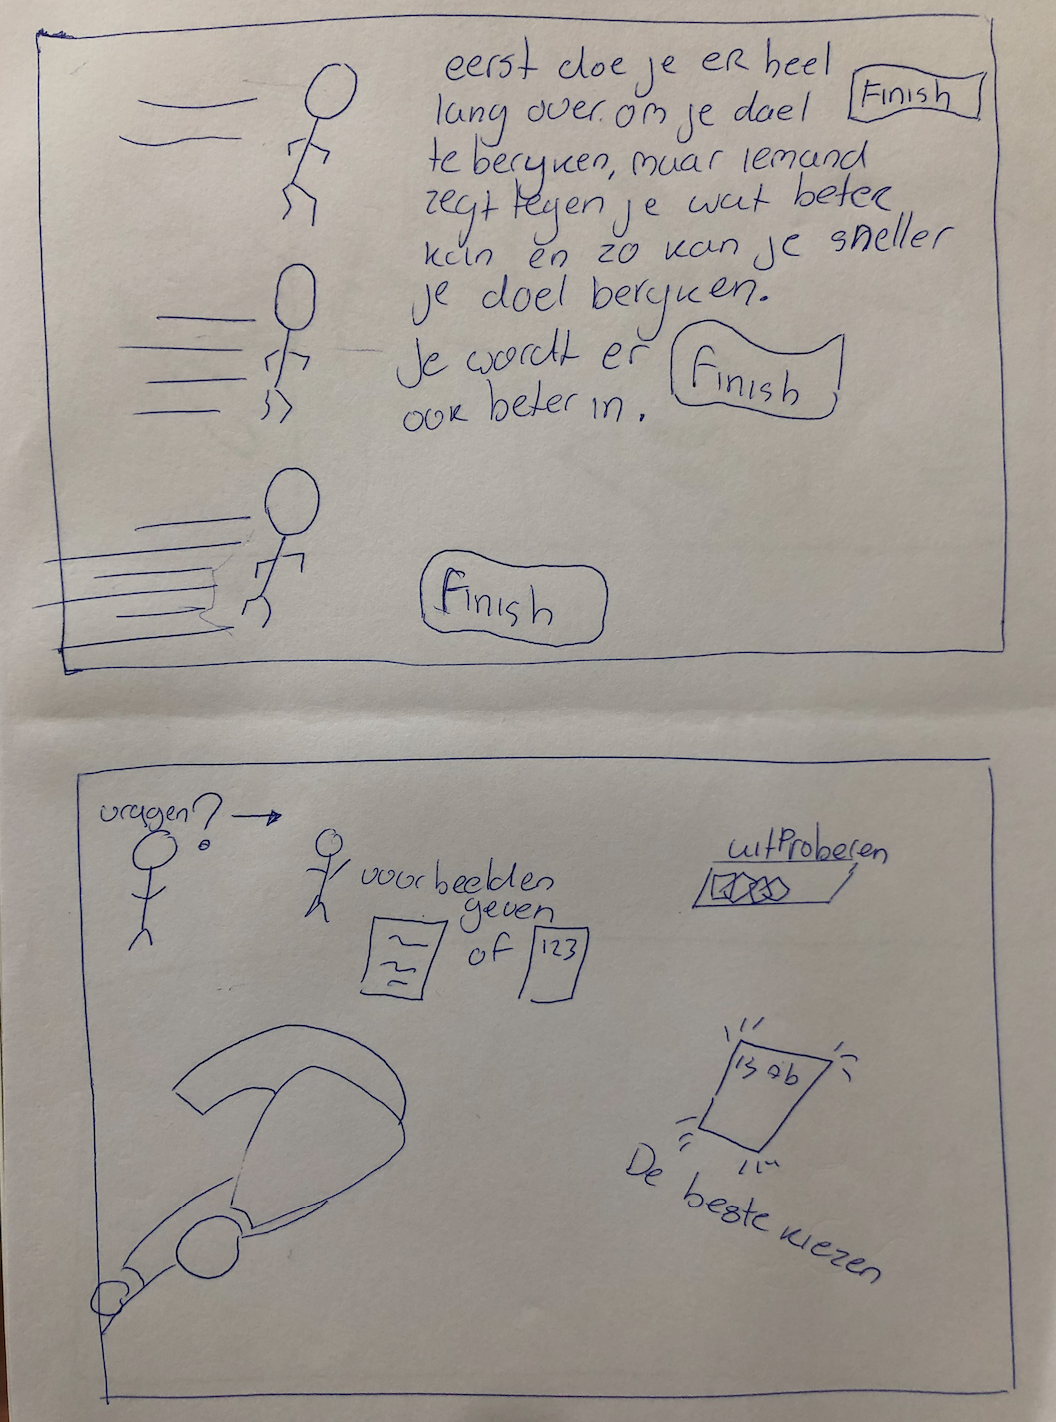 eerst doe je er heel
Finish
lang over om je doel
te beryken, maar iemand
zegt tegen je wat beter
kan en zo kan je sneller
je doel beryken.
Je wordt er
ook beter in.
Finish
Finish
vragen?
voorbeelden
geven
of
123
uitproberen
De beste kiezen